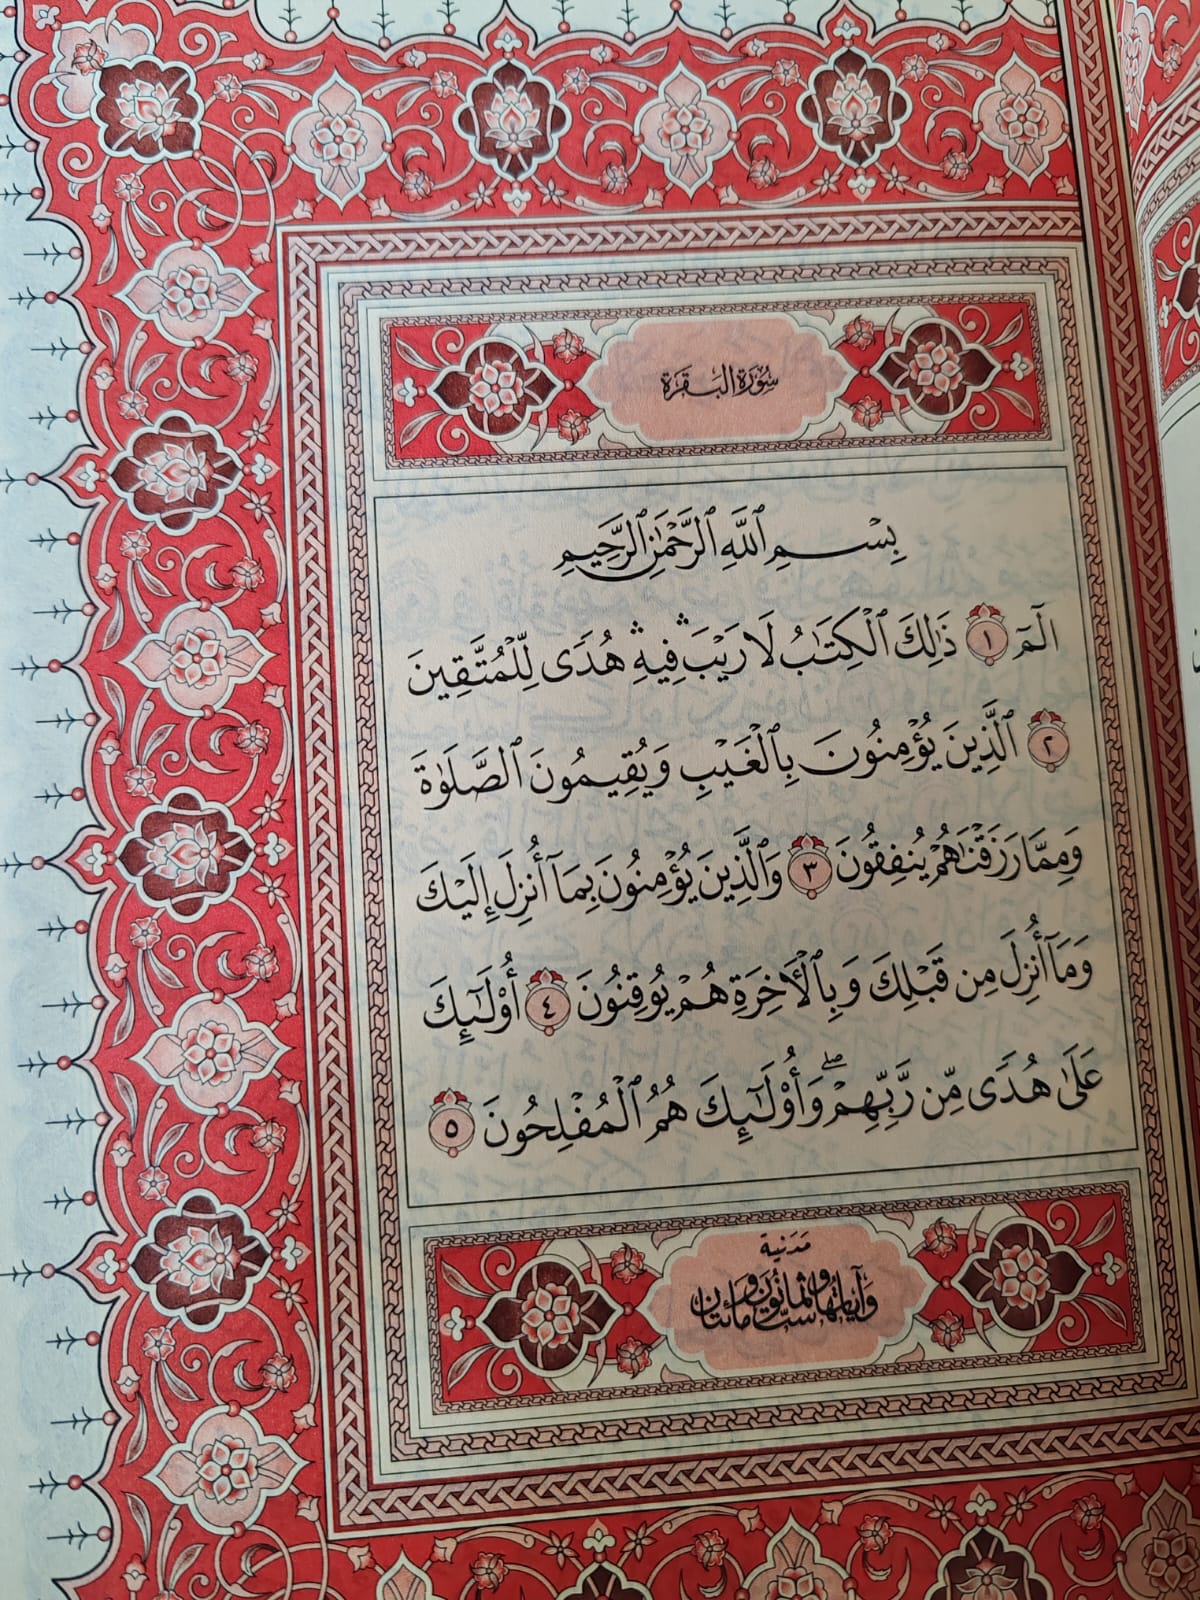 سُورَةُ البَقَرَةِ
بِسْمِ ٱللَّهِ ٱلرَّحْمَٰنِ ٱلرَّحِيمِ
الٓمٓ ١ ذَٰلِكَ ٱلْكِتَٰبُ لَا رَيْبَ ۛ فِيهِ ۛ هُدًى لِّلْمُتَّقِينَ
٢ ٱلَّذِينَ يُؤْمِنُونَ بِٱلْغَيْبِ وَيُقِيمُونَ ٱلصَّلَوٰةَ
وَمِمَّا رَزَقْنَٰهُمْ يُنفِقُونَ ٣ وَٱلَّذِينَ يُؤْمِنُونَ بِمَآ أُنزِلَ إِلَيْكَ
وَمَآ أُنزِلَ مِن قَبْلِكَ وَبِٱلْأَخِرَةِ هُمْ يُوقِنُونَ ٤ أُو۟لَٰٓئِكَ
عَلَىٰ هُدًى مِّن رَّبِّهِمْ ۖ وَأُو۟لَٰٓئِكَ هُمُ ٱلْمُفْلِحُونَ ٥
مَدَنِيَّة
وَآيَاتُهَا سِتٌّ وَثَمَانُونَ وَمِائَتَان